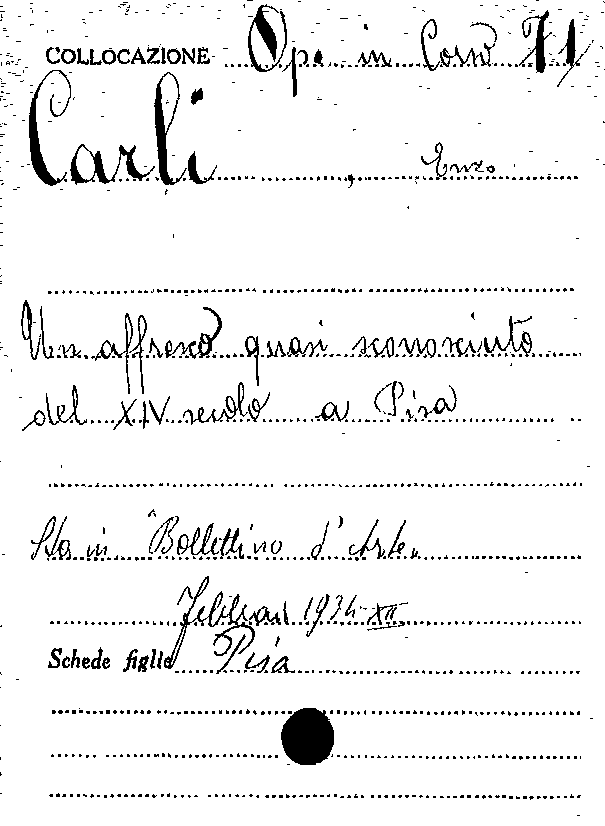 COLLOCAZIONE Ope in Corso 71
Carli, Enzo
Un affresco quasi sconosciuto
del XIV secolo a Pisa
Sta in "Bollettino d'Arte"
Febbraio 1934-XII
Schede figlie Pisa